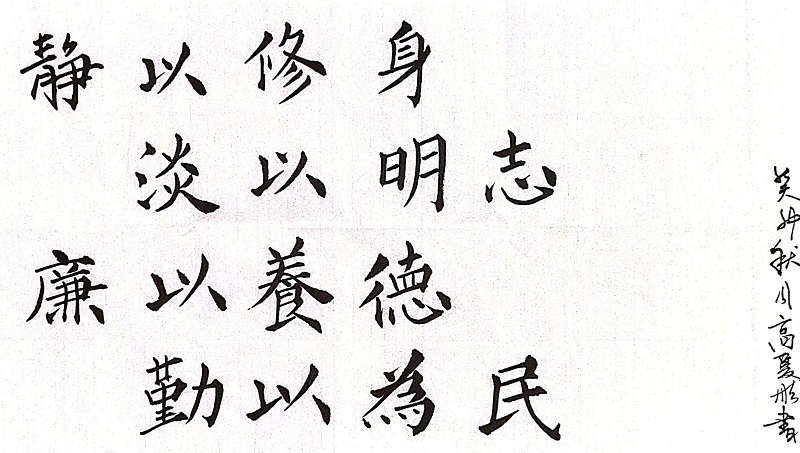 静以修身
淡以明志
廉以養德
勤以為民
癸卯秋月高夏彤書